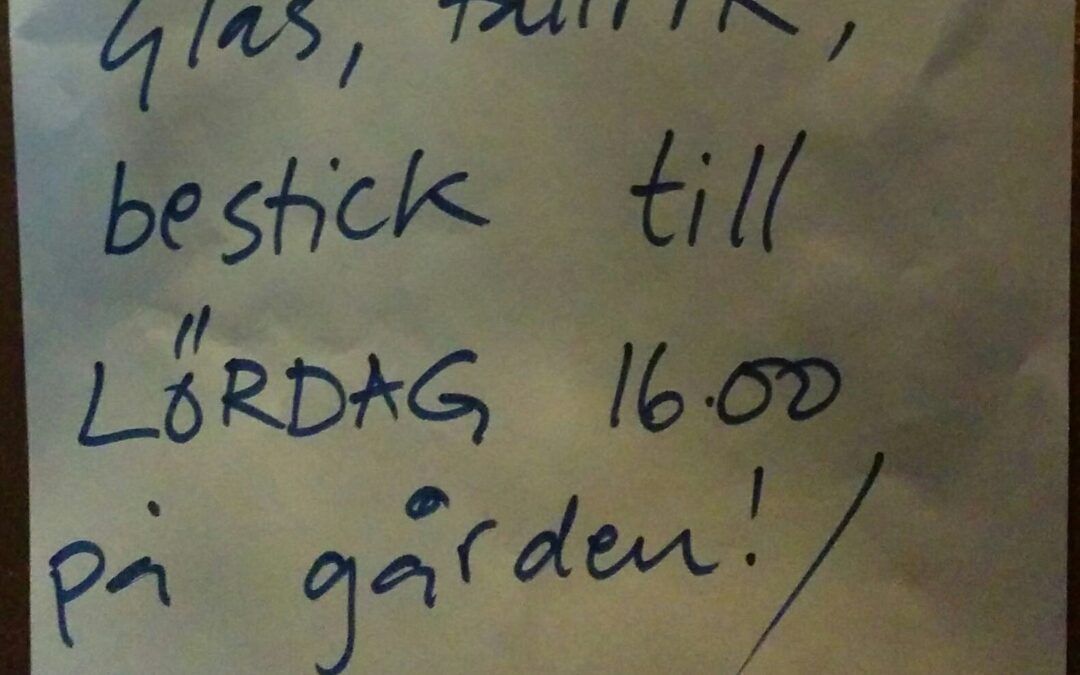 Glas, tallrik,
bestick till
LÖRDAG 16.00
på gården!